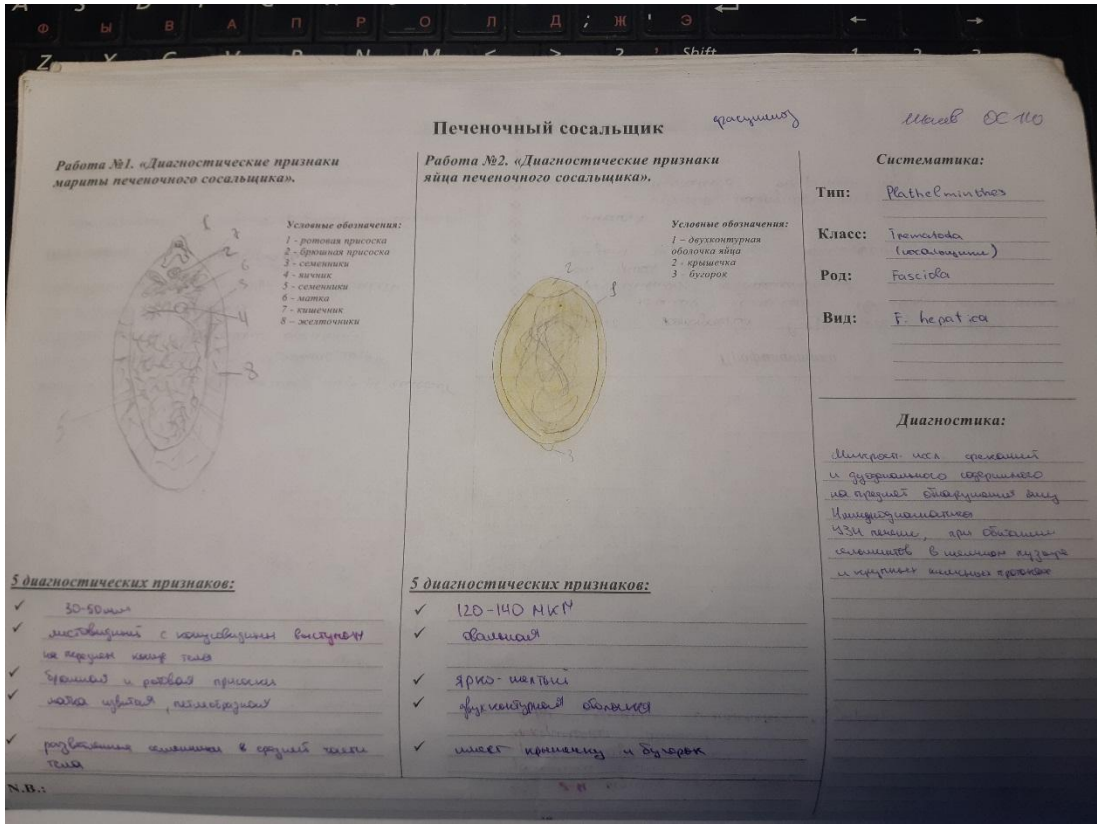 Ф Ы В А П Р О Л Д ; Ж ' Э
Shift
Печеночный сосальщик
фасциолез
ОС 110
Работа №1. «Диагностические признаки
мариты печеночного сосальщика».
Условные обозначения:
1 - ротовая присоска
2 - брюшная присоска
3 - семенники
4 - яичник
5 - семенники
6 - матка
7 - кишечник
8 – желточники
1
7
2
6
3
4
8
5
5 диагностических признаков:
✓ 30-50мм
✓ листовидный с конусовидным выступом
на переднем конце тела
✓ брюшная и ротовая присоски
✓ матка извитая, петлеобразная
✓ разветвленные семенники в средней части
тела
N.B.:
Работа №2. «Диагностические признаки
яйца печеночного сосальщика».
Условные обозначения:
1 – двухконтурная
оболочка яйца
2 - крышечка
3 – бугорок
2
1
3
5 диагностических признаков:
✓ 120-140 МКМ
✓ овальная
✓ ярко-желтый
✓ двухконтурная оболочка
✓ имеет крышечку и бугорок
Систематика:
Тип: Plathelminthes
Класс: Trematoda
(сосальщики)
Род: Fasciola
Вид: F. hepatica
Диагностика:
Микроскоп. иссл. фекалий
и дуоденального содержимого
на предмет обнаружения яиц
Иммунодиагностика
УЗИ печени, при обитании
гельминтов в желчном пузыре
и крупных желчных протоках